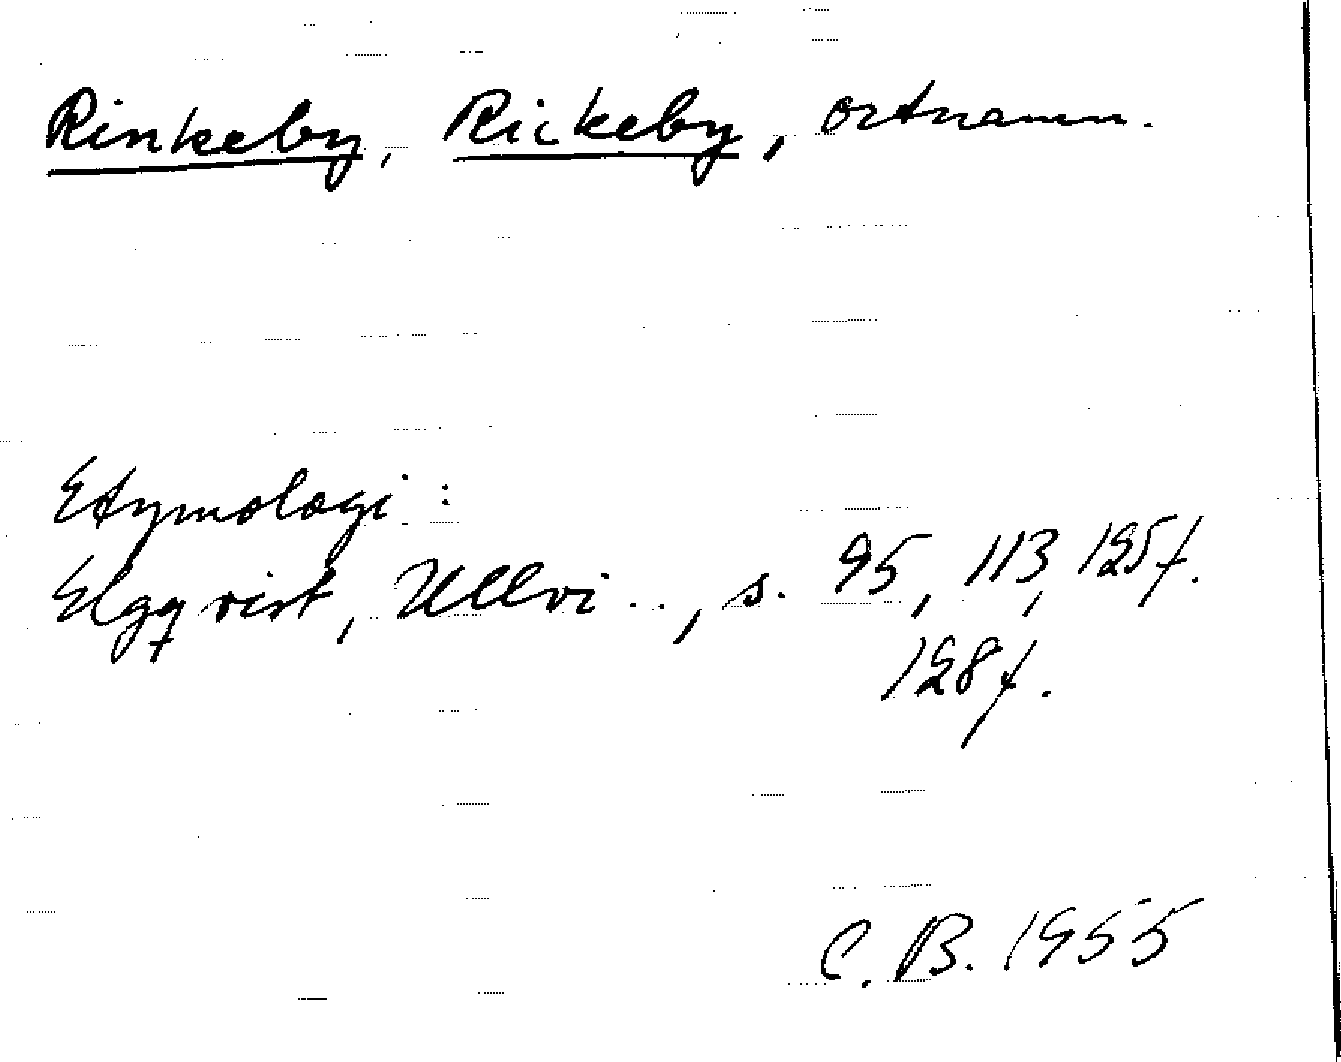 Rinkeby, Rickeby, ortnamn.
Etymologi :
Elgqvist, Ullvi .., s. 95, 113, 125f.
128f.
C. B. 1955